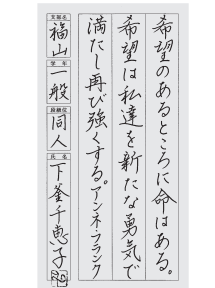 希望のあるところに命はある。
希望は私達を新たな勇気で
満たし再び強くする。アンネ・フランク
支部名
福山
学年
一般
段級位
同人
氏名
下釜千恵子